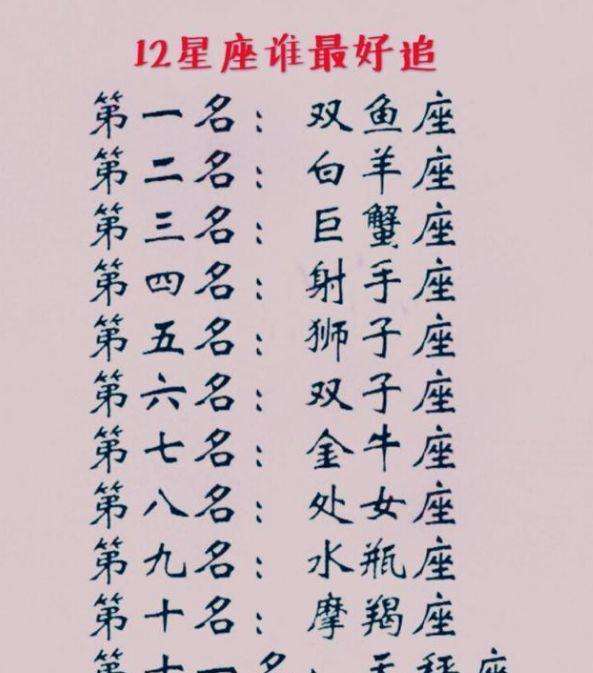 12星座谁最好追
第一名：双鱼座
第二名：白羊座
第三名：巨蟹座
第四名：射手座
第五名：狮子座
第六名：双子座
第七名：金牛座
第八名：处女座
第九名：水瓶座
第十名：摩羯座
第十一名：天秤座